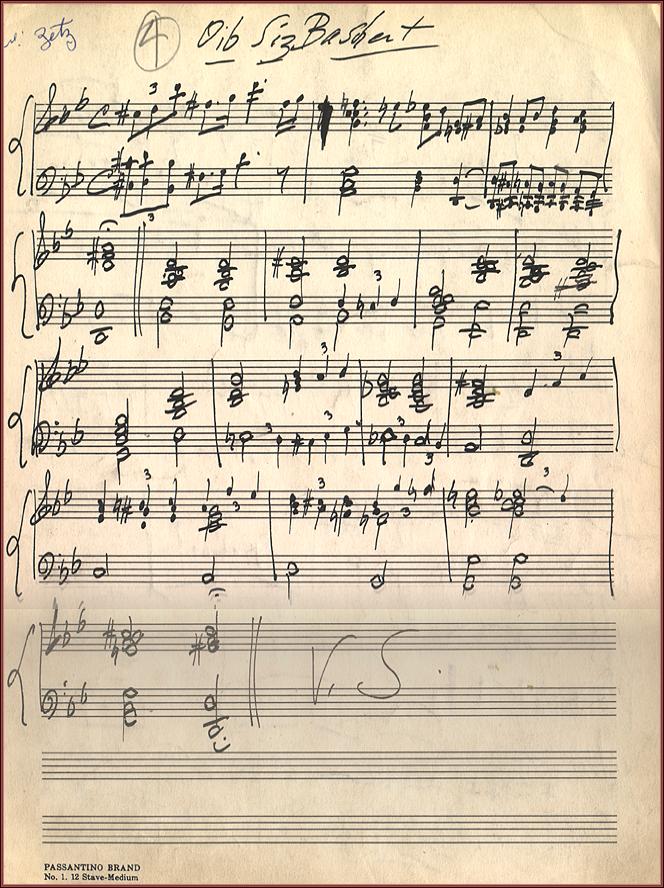 Zetz
4 Oib Siz Bashert
C 3
3
3
3 3
3 3
3 3 3
V.S.
PASSANTINO BRAND
No. 1. 12 Stave-Medium